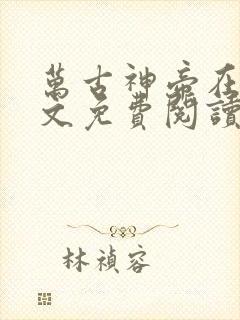 萬古神帝在
文免費閱讀
林禎容